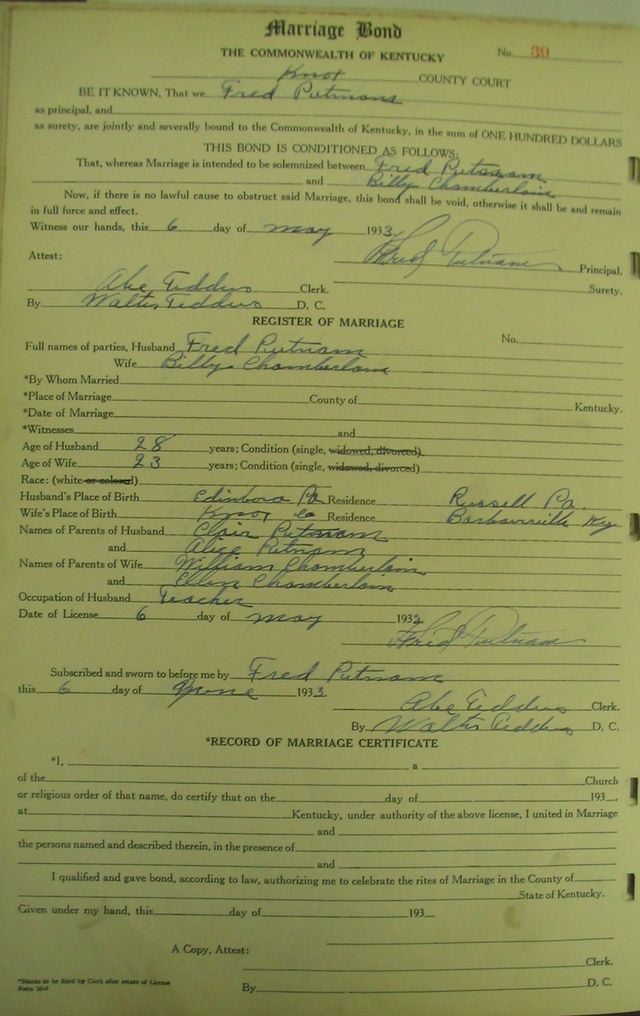 Marriage Bond
THE COMMONWEALTH OF KENTUCKY No. 39
Knox COUNTY COURT
BE IT KNOWN, That we Fred Putmans
as principal, and
as surety, are jointly and severally bound to the Commonwealth of Kentucky, in the sum of ONE HUNDRED DOLLARS
THIS BOND IS CONDITIONED AS FOLLOWS:
That, whereas Marriage is intended to be solemnized between Fred Putnam
and Billy Chamberlain
Now, if there is no lawful cause to obstruct said Marriage, this bond shall be void, otherwise it shall be and remain
in full force and effect.
Witness our hands, this 6 day of May 1933
Fred Putnam Principal.
Attest:
Abe Tedders Clerk. Surety.
By Walter Tedders D. C.
REGISTER OF MARRIAGE
Full names of parties, Husband Fred Putnam No.
Wife Billy Chamberlain
*By Whom Married
*Place of Marriage County of Kentucky.
*Date of Marriage
*Witnesses and
Age of Husband 28 years; Condition (single, widowed, divorced)
Age of Wife 23 years; Condition (single, widowed, divorced)
Race: (white or colored)
Husband's Place of Birth Edinboro Pa Residence Russell Pa.
Wife's Place of Birth Knox Co Residence Barbourville Ky
Names of Parents of Husband Clair Putnam
and Alice Putnam
Names of Parents of Wife William Chamberlain
and Ellen Chamberlain
Occupation of Husband Teacher
Date of License 6 day of May 1933
Fred Putnam
Subscribed and sworn to before me by Fred Putnam
this 6 day of June 1933
Abe Tedders Clerk.
By Walter Tedders D. C.
*RECORD OF MARRIAGE CERTIFICATE
*I, a
of the Church
or religious order of that name, do certify that on the day of 193 .
at Kentucky, under authority of the above license, I united in Marriage
and
the persons named and described therein, in the presence of
and
I qualified and gave bond, according to law, authorizing me to celebrate the rites of Marriage in the County of
State of Kentucky.
Given under my hand, this day of 193
A Copy, Attest:
Clerk.
*Blanks to be filled by Clerk after return of License
By D. C.